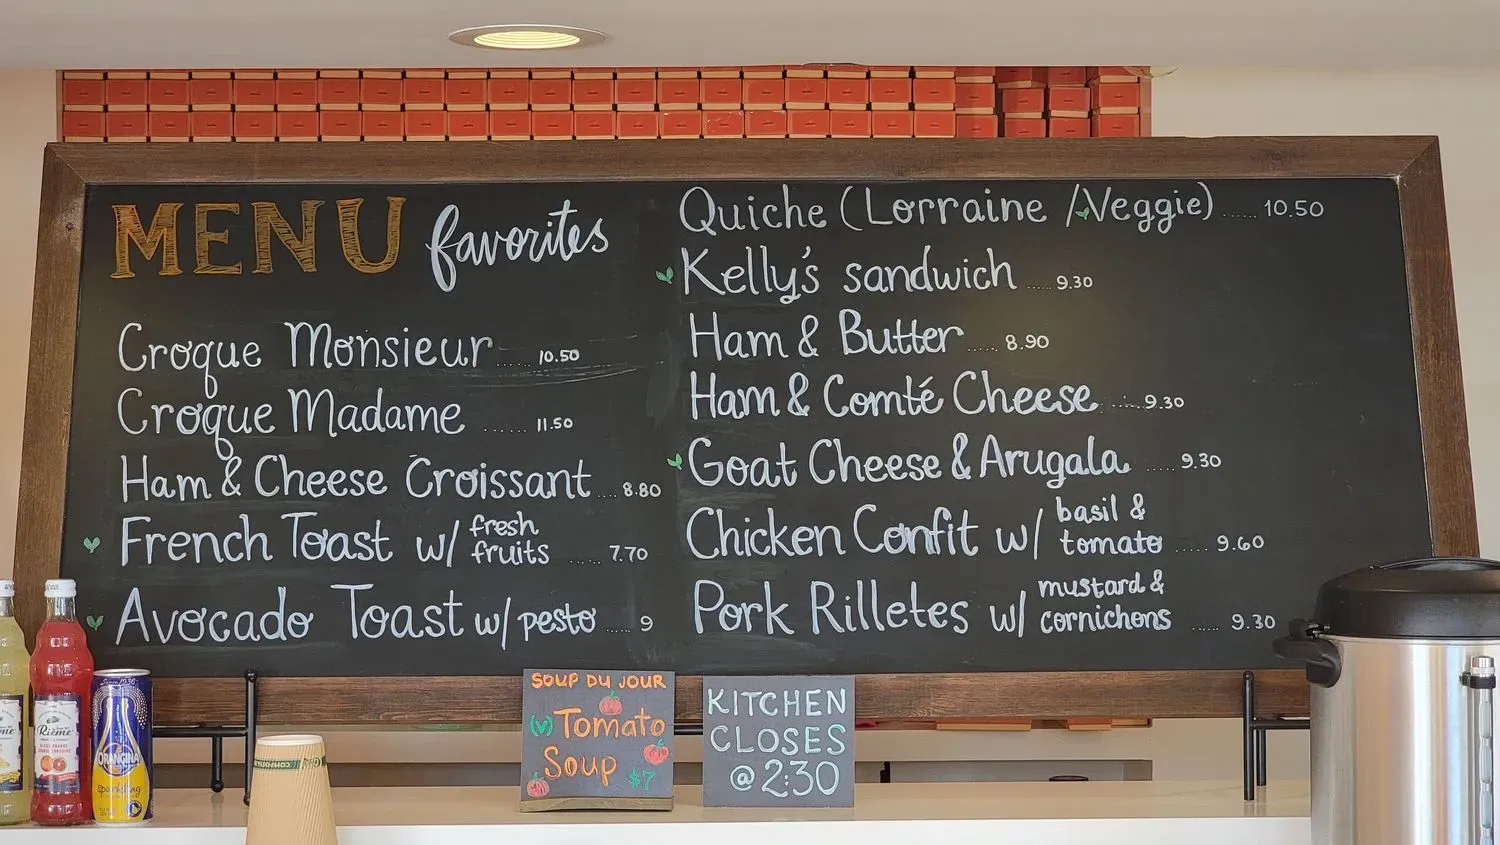 MENU favorites
Croque Monsieur ..... 10.50
Croque Madame ...... 11.50
Ham & Cheese Croissant .... 8.80
French Toast w/ fresh fruits ...... 7.70
Avocado Toast w/ pesto ..... 9
Quiche (Lorraine / Veggie) ..... 10.50
Kelly's sandwich ..... 9.30
Ham & Butter ..... 8.90
Ham & Comté Cheese ..... 9.30
Goat Cheese & Arugala ..... 9.30
Chicken Confit w/ basil & tomato ..... 9.60
Pork Rilletes w/ mustard & cornichons ..... 9.30
SOUP DU JOUR
(V) Tomato
Soup $7
KITCHEN
CLOSES
@ 2:30
Rième
Since 1936
ORANGINA
Sparkling